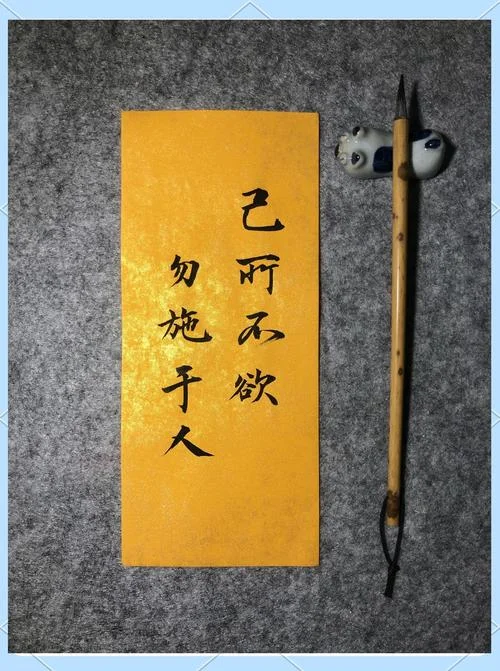 己所不欲
勿施于人